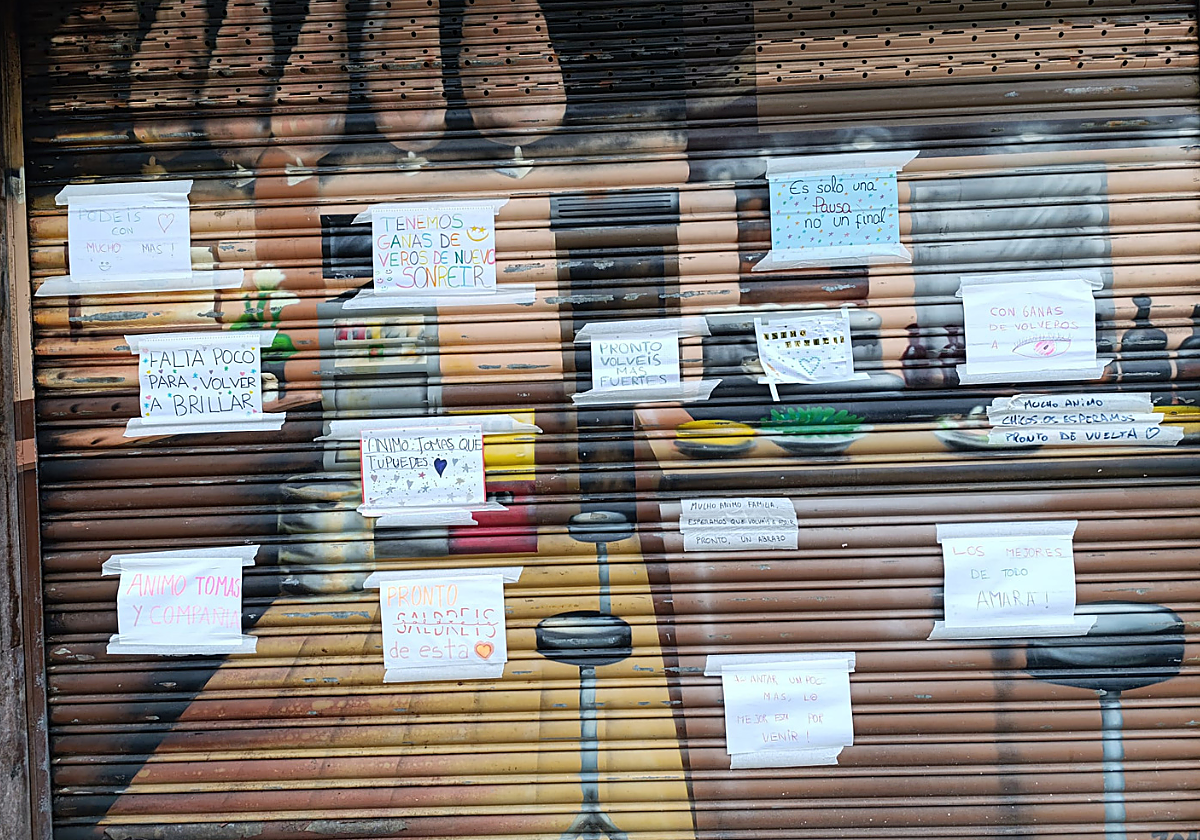 PODEIS
CON
MUCHO MAS!
TENEMOS
GANAS DE
VEROS DE NUEVO
SONREIR
Es solo una
Pausa
no un final
FALTA POCO
PARA VOLVER
A BRILLAR
PRONTO
VOLVEIS
MAS
FUERTES
CON GANAS
DE VOLVEROS
A
MUCHO ANIMO
CHICOS OS ESPERAMOS
PRONTO DE VUELTA
ANIMO: TOMAS QUE
TU PUEDES
MUCHO ANIMO FAMILIA,
ESPERAMOS QUE VOLVAIS
PRONTO, UN ABRAZO
ANIMO TOMAS
Y COMPAÑIA
PRONTO
SALDREIS
de esta
LOS MEJORES
DE TOLO
AMARA!
MAS, LO
MEJOR ESTA POR
VENIR!